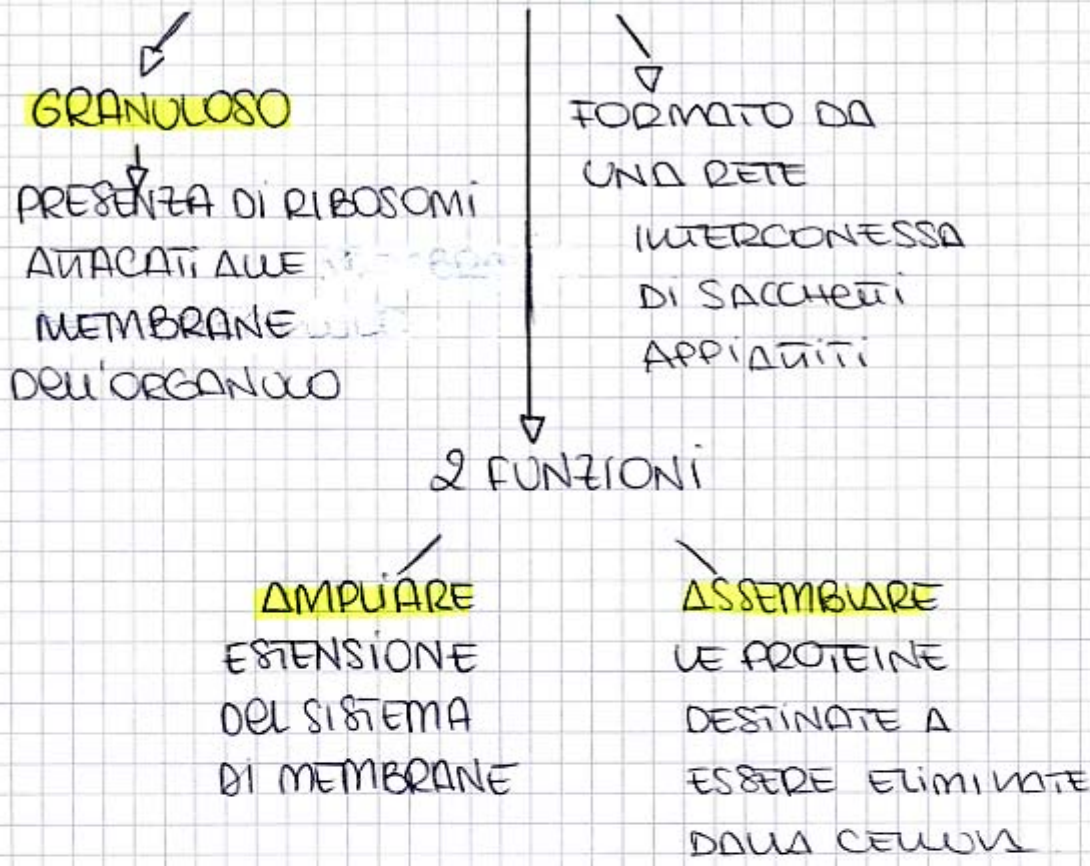 GRANULOSO
PRESENZA DI RIBOSOMI
ATTACATI ALLE
MEMBRANE
DELL'ORGANULO
FORMATO DA
UNA RETE
INTERCONESSA
DI SACCHETTI
APPIATTITI
2 FUNZIONI
AMPLIARE
ESTENSIONE
DEL SISTEMA
DI MEMBRANE
ASSEMBLARE
LE PROTEINE
DESTINATE A
ESSERE ELIMINATE
DALLA CELLULA